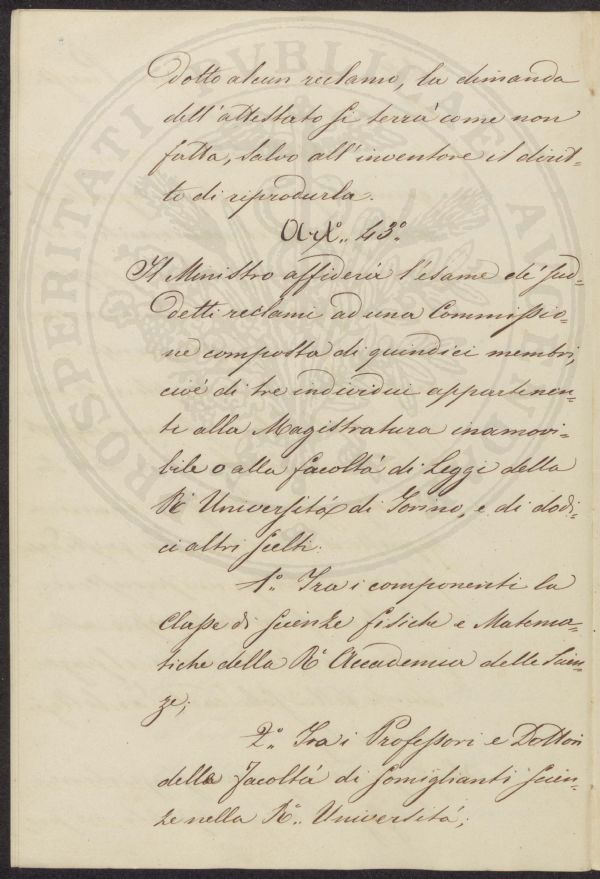 dotto alcun reclamo, la dimanda
dell'attestato si terrà come non
fatta, salvo all'inventore il dirit=
to di riprodurla.
Art.° 43.°
Il Ministro affiderà l'esame de' sud=
detti reclami ad una Commissio=
ne composta di quindici membri,
cioè di tre individui appartenen=
ti alla Magistratura inamovi=
bile o alla facoltà di Leggi della
R.ª Università di Torino, e di dodi=
ci altri scelti:
1.° Tra i componenti la
Classe di scienze fisiche e Matema=
tiche della R.ª Accademia delle Scien=
ze;
2.° Tra i Professori e Dottori
della Facoltà di somiglianti scien=
ze nella R.ª Università;
PROSPERITATI PUBLICAE AUGENDAE